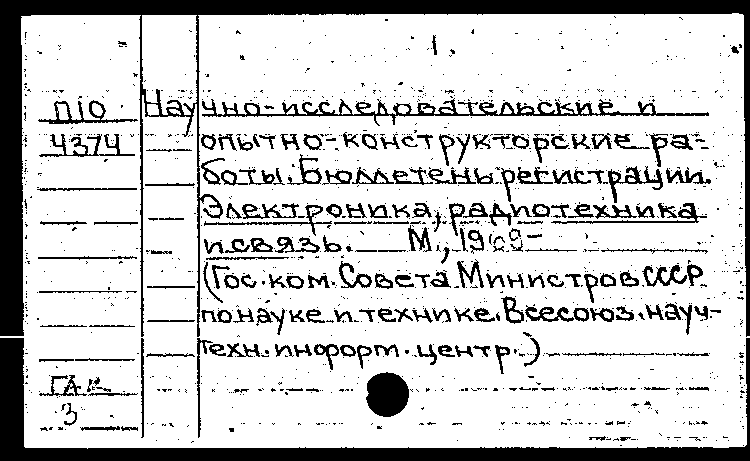 1.
П10 Научно-исследовательские и
4374 опытно-конструкторские ра-
боты. Бюллетень регистрации.
Электроника, радиотехника
и связь. М., 1969-
(Гос. ком. Совета Министров СССР
по науке и технике. Всесоюз. науч-
техн. информ. центр.)
3